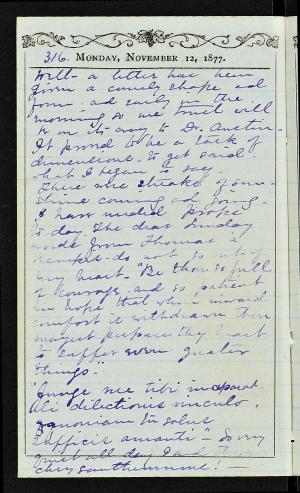 316. MONDAY, NOVEMBER 12, 1877.
Well - a letter has been
given a comely shape and
form and early in the
morning so we trust will
be on its way to Dr. Austin.
It proved to be a task of
dimensions. To get said
what I began to say.
There were streaks of sun-
shine coming and going.
I have needed props
to day. The dear Sunday
words from Thomas a
Kempis do not go out of
my heart. "Be thou so full
of courage and so patient
in hope that when inward
comfort is withdrawn thou
mayest prepare thy heart
to suffer even greater
things."
"Junge me tibi inseparab
ili dilectionis vinculo,
quoniam tu solus
sufficis amanti" - So very
quiet all day I and
chrysanthemums! -